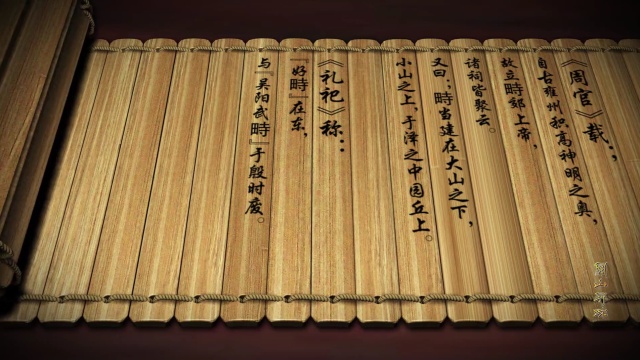 《周官》载：，
自古雍州积高神明之奥，
故立畤郊上帝，
诸祠皆聚云。
又曰：，畤当建在大山之下，
小山之上，于泽之中园丘上。
《礼祀》称：：
『好畤』在东，
与『吴阳武畤』于殷时废。